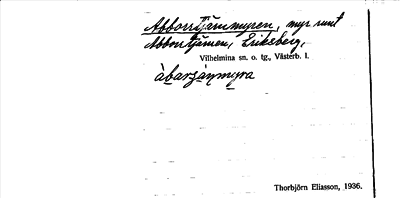 Abborrtjärnmyren, myr runt
Abborrtjärnen, Eriksberg,
Vilhelmina sn. o. tg., Västerb. l.
àbarʒànmyra
Thorbjörn Eliasson, 1936.